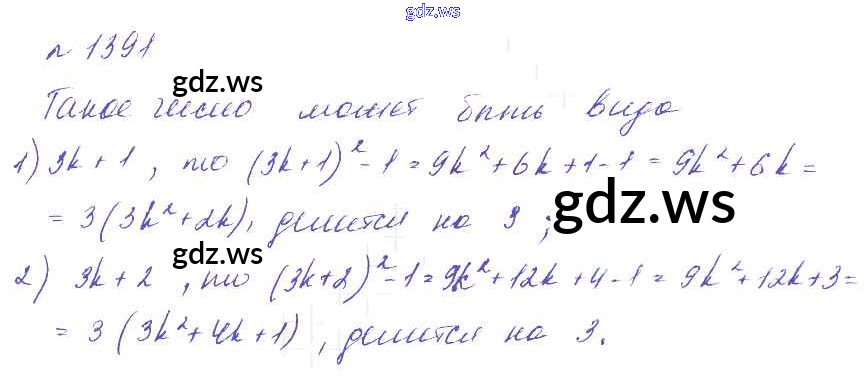 gdz.ws
№ 1391
gdz.ws
Такое число может быть вида
1) 3k + 1, то (3k+1)² - 1 = 9k² + 6k + 1 - 1 = 9k² + 6k =
= 3 (3k² + 2k), делится на 3;
gdz.ws
gdz.ws
2) 3k + 2, то (3k+2)² - 1 = 9k² + 12k + 4 - 1 = 9k² + 12k + 3 =
= 3 (3k² + 4k + 1), делится на 3.